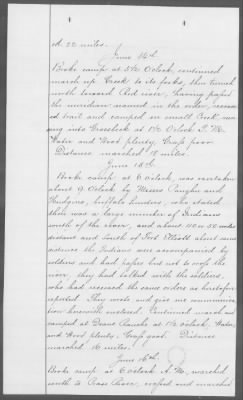 st. 22 miles.
June 14th
Broke camp at 5½ O'clock, continued
march up Creek to its forks, then turned
north toward Red river, having passed
the meridian named in the order, reversed
trail and camped in small Creek
ing into Groesbeck at 1½ O'clock P.M.
Water and Wood plenty. Grass poor
Distance marched 18 miles.
June 15th
Broke camp at 6 o'clock, was overtaken
about 9 O'clock by Messrs and
Hudgins, buffalo hunters, who stated
there was a large number of Indians
south of the river, and about 110 or 50 miles
distant and South of Fort Elliott about
the Indians were accompanied by
soldiers and had papers but not to cross the
river. they had talked with the soldiers,
who had received the same orders as heretofore
reported. They wrote and give me communica-
tion herewith enclosed. Continued march and
camped at Deans Ranche at 1½ o'clock, Water
and Wood plenty. Grass good. Distance
marched 16 miles.
June 16th
Broke camp at 6 o'clock A.M., marched
south to Pease River, crossed and marched